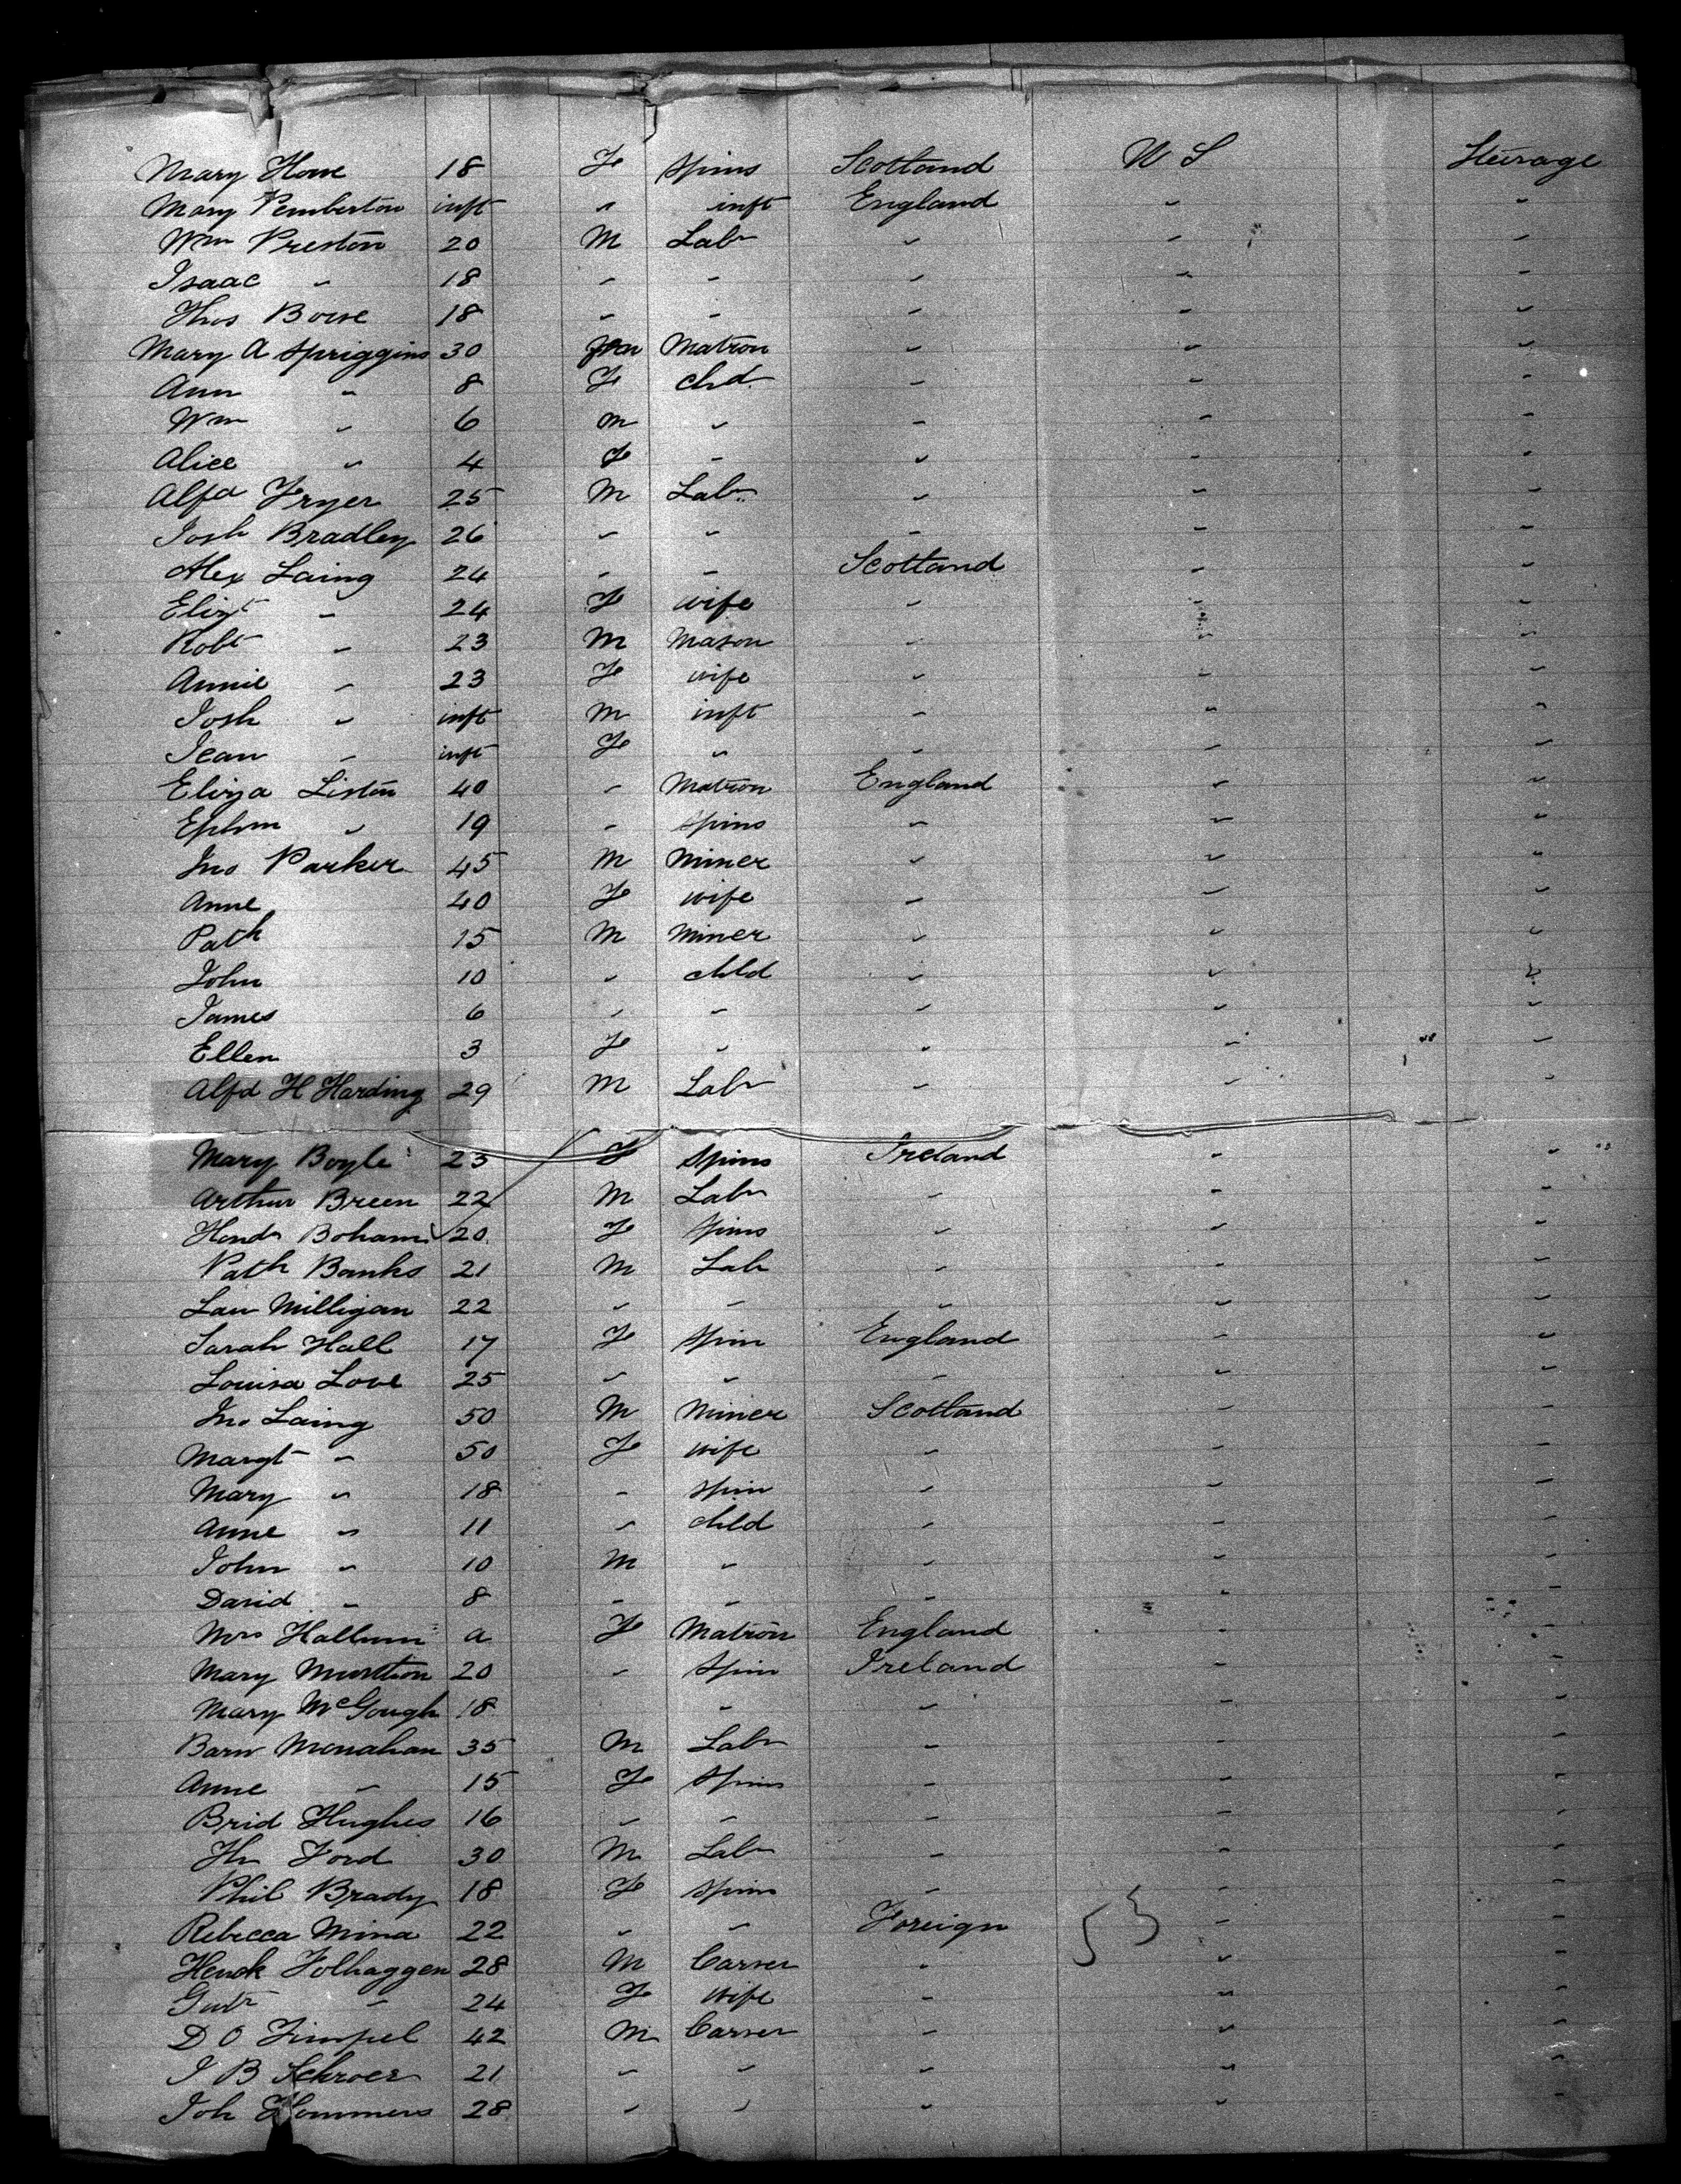 Mary Howe 18 F Spins Scotland U S Steerage
Mary Pemberton inft " inft England " "
Wm Preston 20 M Labr " " "
Isaac " 18 " " " " "
Thos Bowe 18 " " " " "
Mary A Spriggins 30 Matron " " "
Ann " 8 F chd " " "
Wm " 6 m " " " "
Alice " 4 F " " " "
Alfd Fryer 25 M Labr " " "
Josh Bradley 26 " " " " "
Alex Laing 24 " " Scotland " "
Elizt " 24 F wife " " "
Robt " 23 M Mason " " "
Annie " 23 F wife " " "
Josh " inft M inft " " "
Jean " inft F " " " "
Eliza Liston 40 " Matron England " "
Ephm " 19 " Spins " " "
Jno Parker 45 M Miner " " "
Anne 40 F wife " " "
Patk 15 M Miner " " "
John 10 " child " " "
James 6 " " " " "
Ellen 3 F " " " "
Alfd H Harding 29 M Labr " " "
Mary Boyle 23 F Spins Ireland " "
Arthur Breen 22 M Labr " " "
Boham 20 F Spins " " "
Patk Banks 21 M Lab " " "
Law Milligan 22 " " " " "
Sarah Hall 17 F Spin England " "
Louisa Love 25 " " " " "
Jno Laing 50 M Miner Scotland " "
Margt " 50 F wife " " "
Mary " 18 " Spin " " "
Anne " 11 " child " " "
John " 10 M " " " "
David " 8 " " " " "
Mrs Hallum a F Matron England " "
Mary 20 " Spin Ireland " "
Mary McGough 18 " " " "
Barn Monahan 35 M Labr " " "
Anne " 15 F Spins " " "
Brid Hughes 16 " " " " "
Ford 30 M Labr " " "
Phil Brady 18 F Spins " " "
Rebecca Mina 22 " " Foreign 53 " "
Folhaggen 28 M Carver " " "
" 24 F Wife " " "
D O Fimpel 42 M Carver " " "
J B Schroer 21 " " " " "
Joh 28 " " " " "